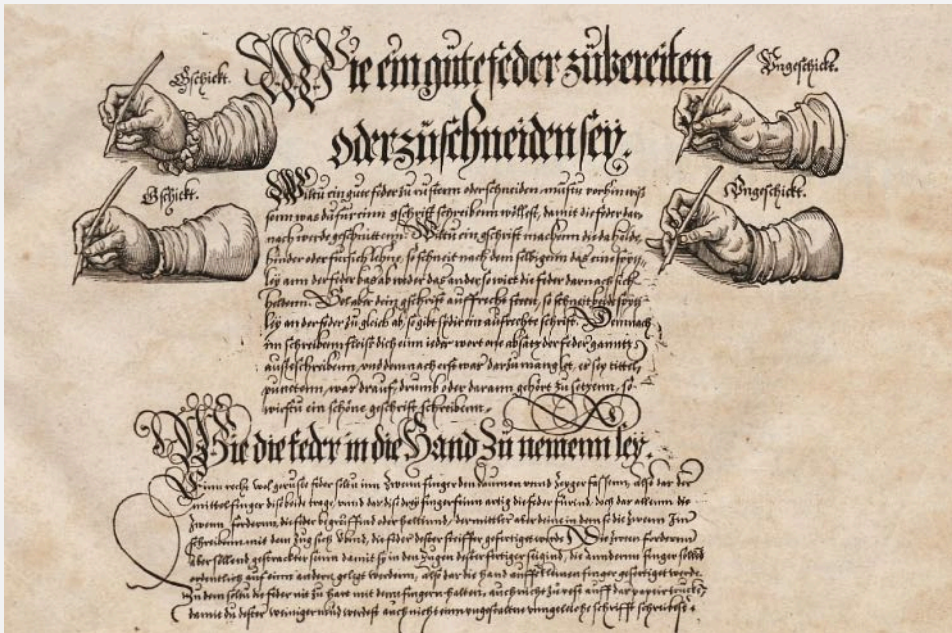 Gschickt.
Wie ein gute feder zubereiten
Ungeschickt.
oder zuschneiden sey.
Gschickt.
Ungeschickt.
Wiltu ein gute feder zu rusten oder schneiden mustu vorhin
senn was du für einn gschrifft schreibenn wöllest, damit die feder dar
nach werde geschnittenn. Wiltu ein gschrift machenn die da helde
hinder oder fürsich lehne, so schneit nach dem selbigenn das eine
ley ann der feder bas ab weder das ander so wirt die feder darnach sich
heltenn. Sol aber dein gschrifft auffrecht steen, so schneit beide
ley an der feder zu gleich ab, so gibt sy dir ein aufrechte schrift. Demnach
im schreibenn fleis dich einn ieder wort one absatz der feder ganntz
aus schreibenn, und demnach erst was darzu manglet, es sey tittel
punctenn, was drauf, drumb oder darann gehört zu setzenn, so
wirstu ein schöne geschrift schreibenn.
Wie die feder in die Hand zu nemenn sey.
Einn recht wol feder soltu inn zwenn finger den daumen unnd zeyger fassenn, also das der
mittel finger dise beide trage, unnd das dise drey finger finn artig die feder fürind, doch das allenn die
zwenn fordernn, die feder begriffind oder haltind, der mittler aber deine in dem so die zwenn Im
schreibenn mit dem zug sich übind, die feder dester steiffer gefertiget werde. Die zwen fordernn
aber sollend gestrackter seinn damit sy in den zugen dester fertiger seigind, die anndernn finger
ordenlich auf einn andern gelegt werdenn, also das die hand auff kleinen finger gefertiget werde.
Zu dem soltu die feder nit zu hart mit denn fingern halten, auch nit zu vest auff das papier trucken
damit du dester weiniger müd werdest auch nicht einn ungestalten ungeleiche schrifft schreibest.